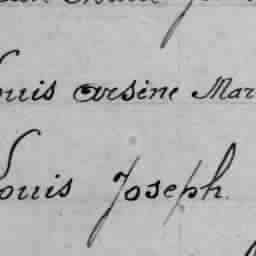 Louis arsène Mar
Louis Joseph